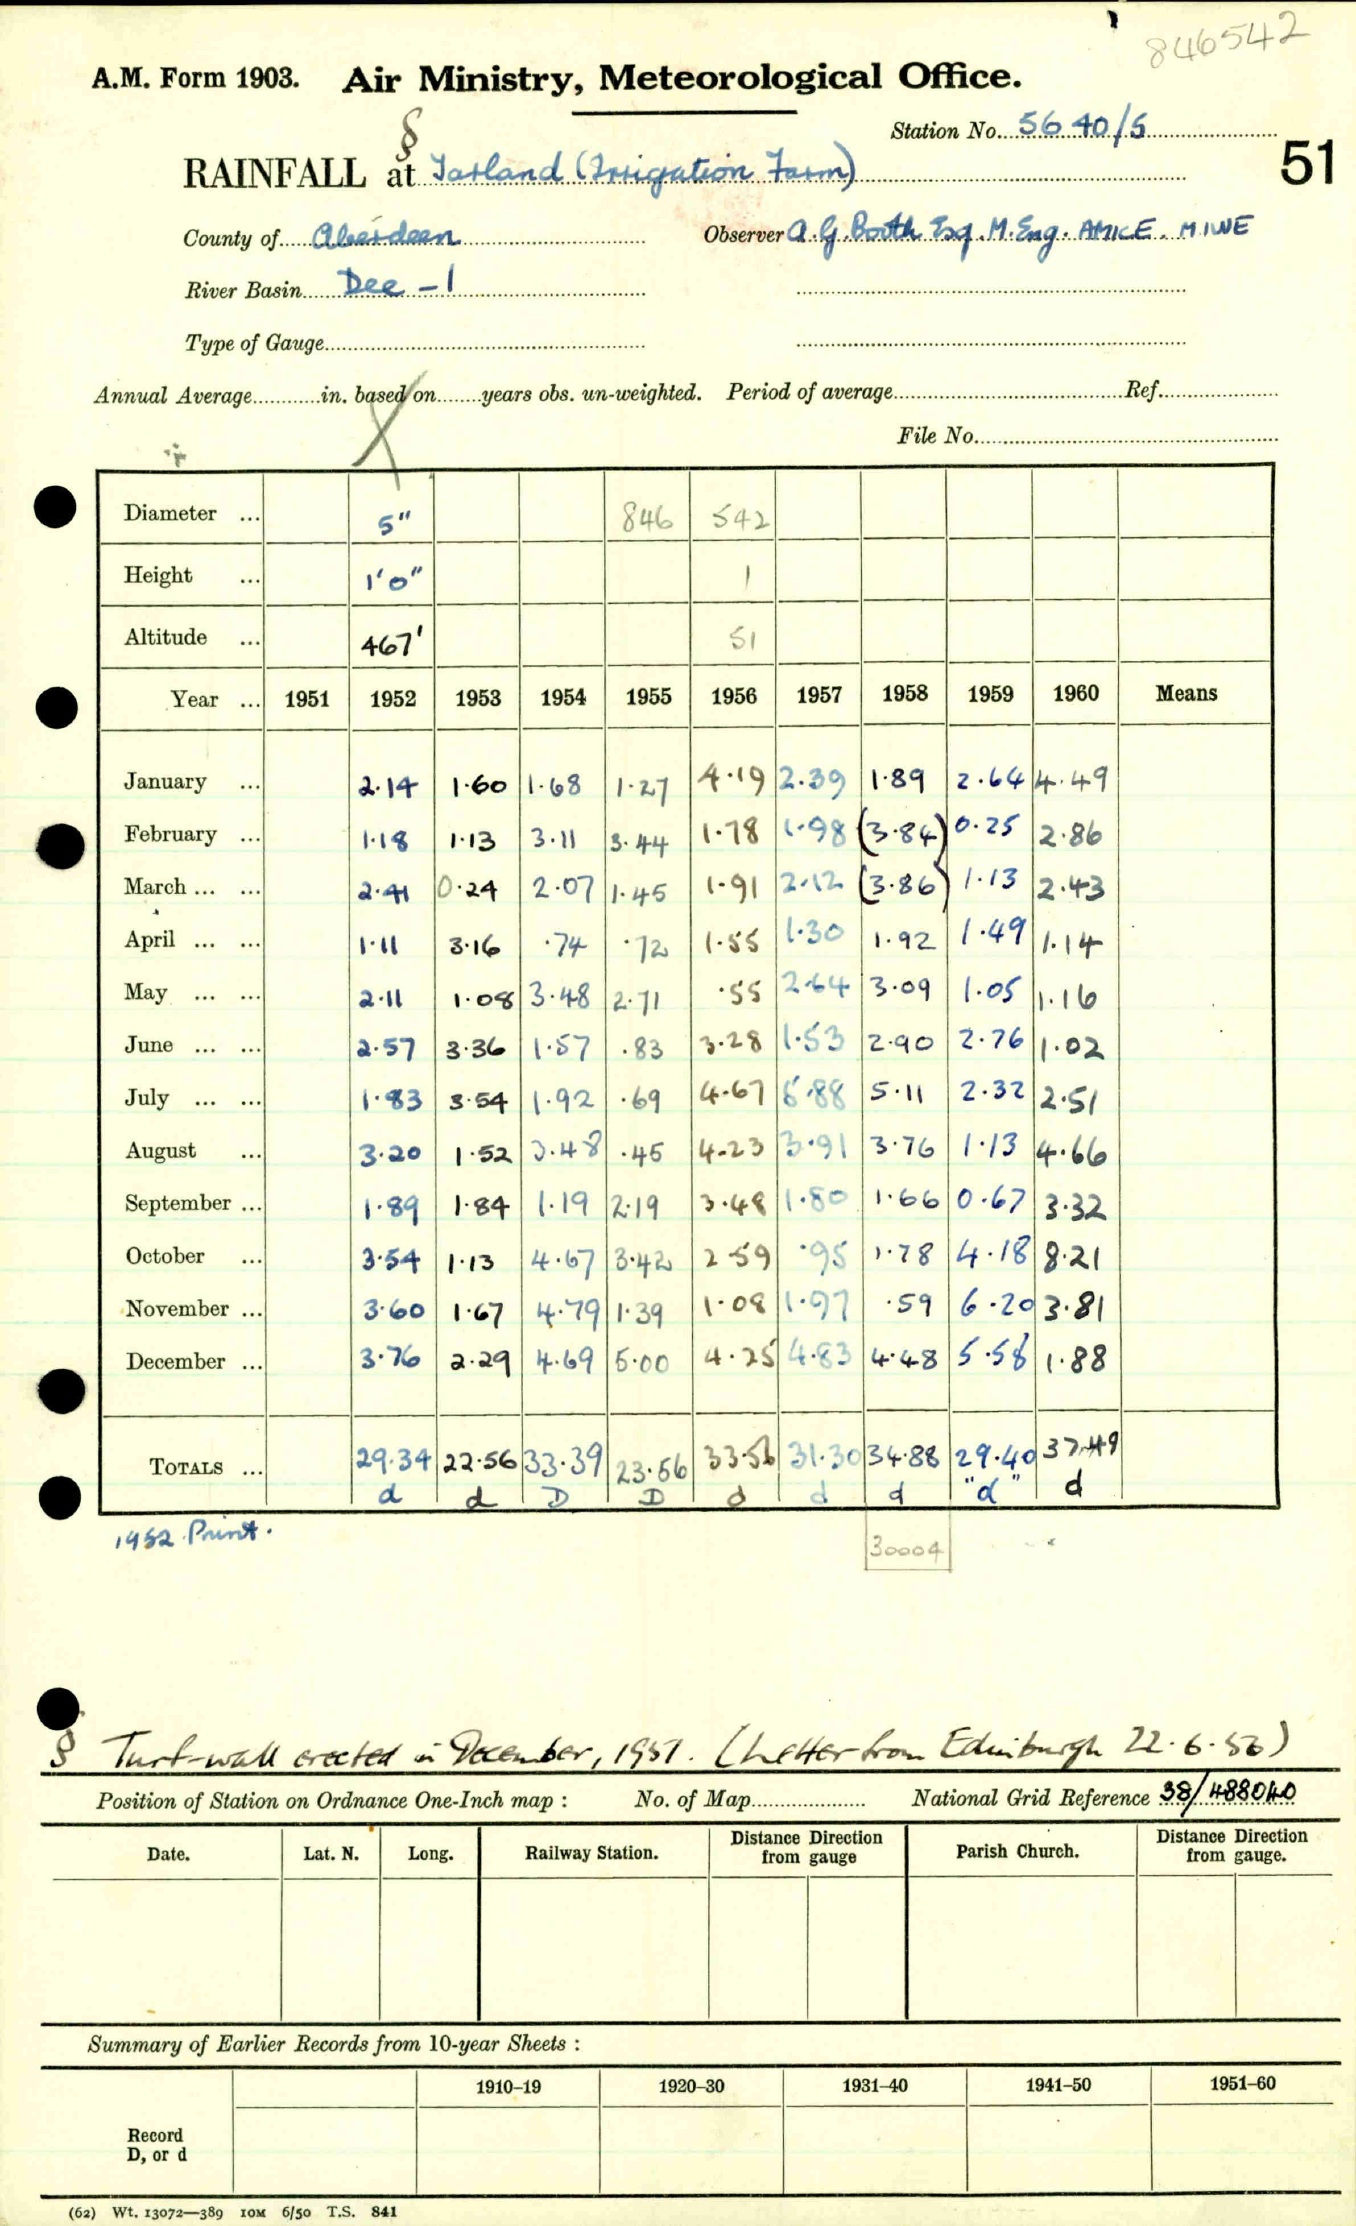 846542
A.M. Form 1903. Air Ministry, Meteorological Office.
Station No. 5640/5
§
RAINFALL at Tarland (Irrigation Farm)
51
County of Aberdeen Observer A.G. Booth Esq. M.Eng. AMICE. MIWE
River Basin Dee - 1
Type of Gauge
Annual Average in. based on years obs. un-weighted. Period of average Ref.
File No.
Diameter ... 5" 846 542
Height ... 1'0" 1
Altitude ... 467' 51
Year ... 1951 1952 1953 1954 1955 1956 1957 1958 1959 1960 Means
January ... 2.14 1.60 1.68 1.27 4.19 2.39 1.89 2.64 4.49
February ... 1.18 1.13 3.11 3.44 1.78 1.98 (3.84) 0.25 2.86
March ... ... 2.41 0.24 2.07 1.45 1.91 2.12 (3.86) 1.13 2.43
April ... ... 1.11 3.16 .74 .72 1.55 1.30 1.92 1.49 1.14
May ... ... 2.11 1.08 3.48 2.71 .55 2.64 3.09 1.05 1.16
June ... ... 2.57 3.36 1.57 .83 3.28 1.53 2.90 2.76 1.02
July ... ... 1.83 3.54 1.92 .69 4.67 5.88 5.11 2.32 2.51
August ... 3.20 1.52 3.48 .45 4.23 3.91 3.76 1.13 4.66
September ... 1.89 1.84 1.19 2.19 3.48 1.80 1.66 0.67 3.32
October ... 3.54 1.13 4.67 3.42 2.59 .95 1.78 4.18 8.21
November ... 3.60 1.67 4.79 1.39 1.08 1.97 .59 6.20 3.81
December ... 3.76 2.29 4.69 5.00 4.25 4.83 4.48 5.58 1.88
TOTALS ... 29.34 22.56 33.39 23.56 33.56 31.30 34.88 29.40 37.49
d d D D d d d "d" d
1952 Print.
30004
§ Turf-wall erected in December, 1951. (Letter from Edinburgh 22.6.56)
Position of Station on Ordnance One-Inch map : No. of Map National Grid Reference 38/488040
Date. Lat. N. Long. Railway Station. Distance Direction from gauge Parish Church. Distance Direction from gauge.
Summary of Earlier Records from 10-year Sheets :
1910–19 1920–30 1931–40 1941–50 1951–60
Record
D, or d
(62) Wt. 13072—389 10M 6/50 T.S. 841